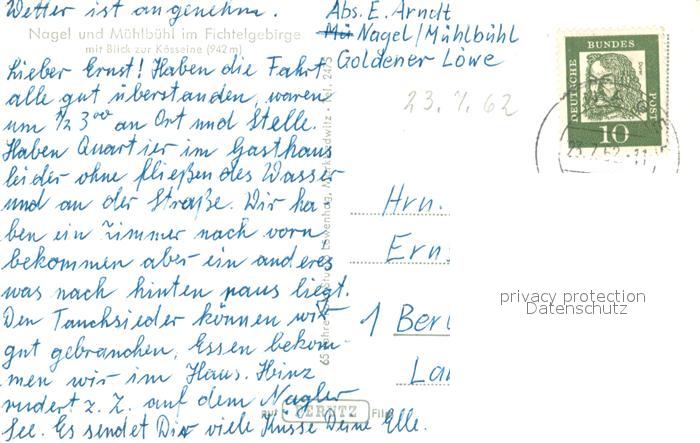 Wetter ist angenehm.
Nagel und Mühlbühl im Fichtelgebirge
mit Blick zur Kösseine (942 m)
Lieber Ernst! Haben die Fahrt
alle gut überstanden, waren
um ½ 3 00 an Ort und Stelle.
Haben Quartier im Gasthaus
leider ohne fließendes Wasser
und an der Straße. Wir ha
ben ein Zimmer nach vorn
bekommen aber ein anderes
was nach hinten raus liegt.
Den Tauchsieder können wir
gut gebrauchen, Essen bekom-
men wir im Haus. Heinz
rudert z. Z. auf dem Nagler
See. Es sendet Dir viele Küsse Deine Elle.
Abs. E. Arndt
Nagel/Mühlbühl
Goldener Löwe
23.7.62
DEUTSCHE BUNDES POST
10
23.7.62.-11
Hrn.
Ern
1 Ber
La
65 Jahre
PERUTZ Film
privacy protection
Datenschutz